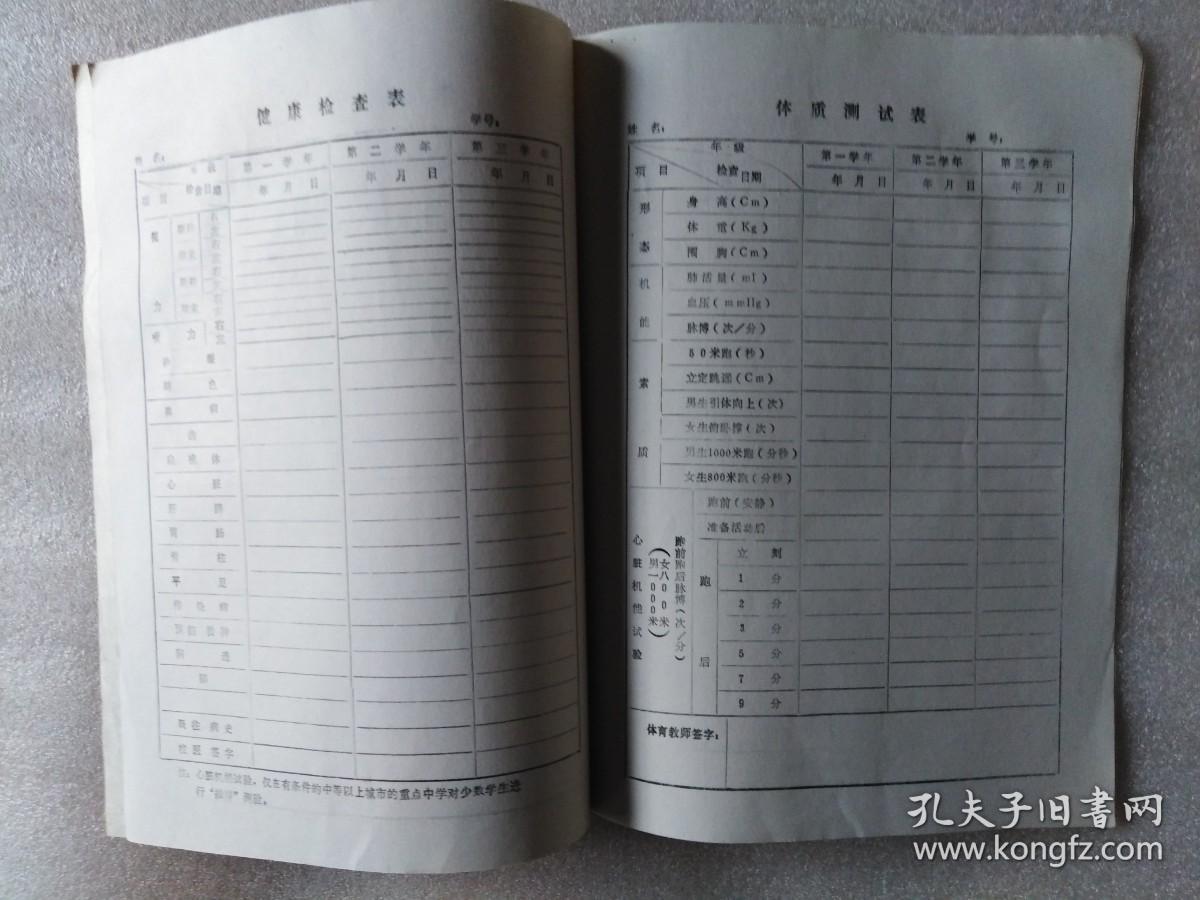 健康检查表
学号：
姓名：
年级
第一学年
第二学年
第三学年
检查日期
项目
年月日
年月日
年月日
视
力
听力
右
左
辨色
扁桃体
心脏
肝脾
脊柱
平足
既往病史
校医签字
注：心脏机能试验，仅在有条件的中等以上城市的重点中学对少数学生选
行“推荐”测验。
体质测试表
姓名：
学号：
年级
第一学年
第二学年
第三学年
项目
检查日期
年月日
年月日
年月日
形态
身高（Cm）
体重（Kg）
围胸（Cm）
机能
肺活量（ml）
血压（mmHg）
脉博（次／分）
素质
50米跑（秒）
立定跳远（Cm）
男生引体向上（次）
女生俯卧撑（次）
男生1000米跑（分秒）
女生800米跑（分秒）
心脏机能试验
（女八00米
男一000米）
跑前跑后脉博（次／分）
跑前（安静）
准备活动后
跑后
立刻
1分
2分
3分
5分
7分
9分
体育教师签字：
孔夫子旧书网
www.kongfz.com